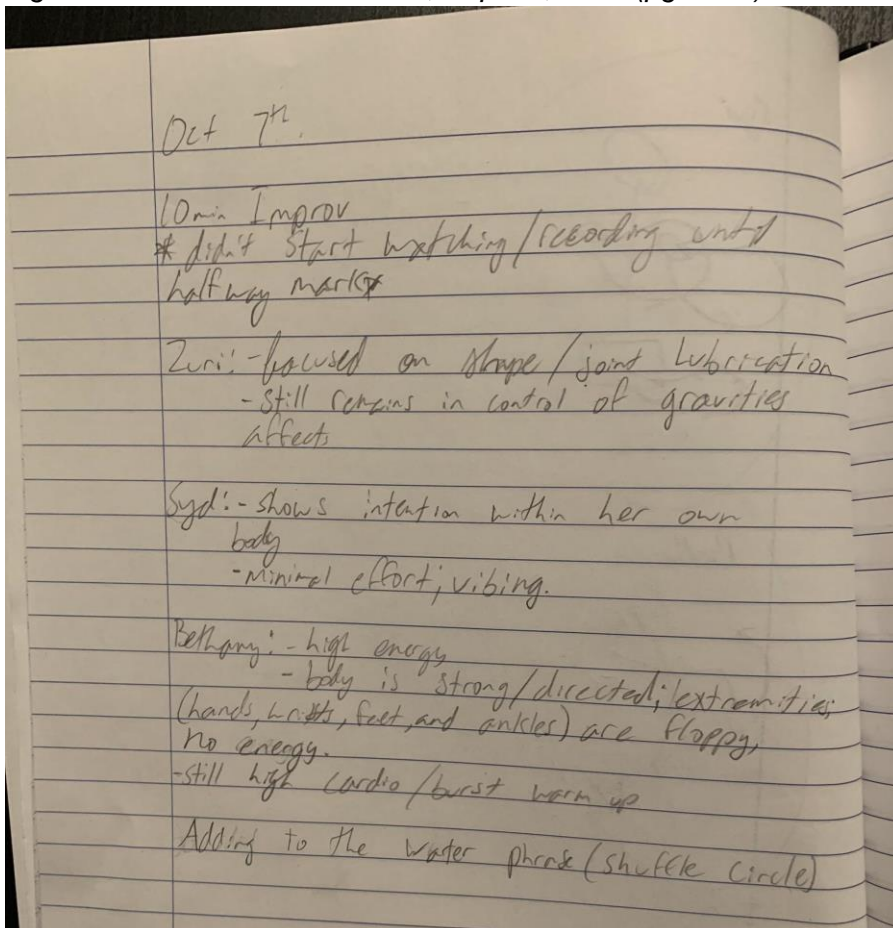 Oct 7th.
10min Improv
* didn't start watching/recording until
halfway mark*
Zuri: -focused on shape/joint lubrication
-still remains in control of gravities
affects
Syd: - shows intention within her own
body
-minimal effort; vibing.
Bethany: - high energy
- body is strong/directed; extremities;
(hands, wrists, feet, and ankles) are floppy,
no energy.
-still high cardio/burst warm up
Adding to the water phrase (shuffle circle)